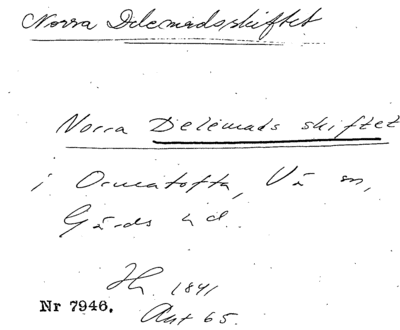 Norra Delemadsskiftet
Norra Delemads skiftet
i Ormatofta, Vå sn,
Gärds hd.
1841
Nr 7946.
Akt 65.